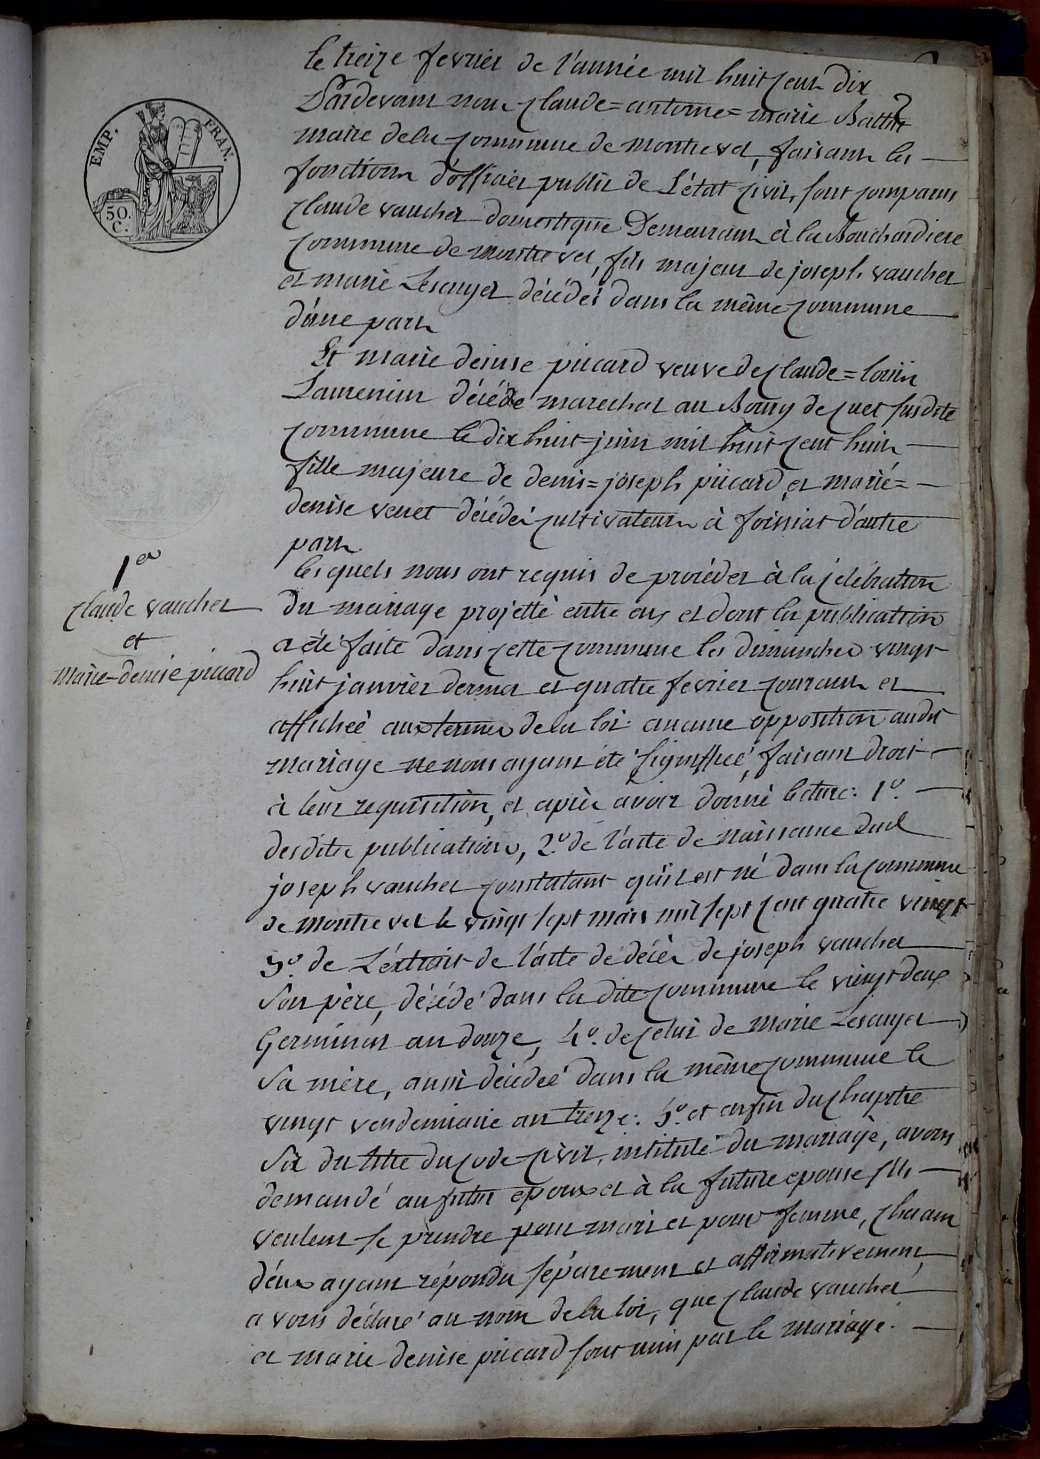 EMP. FRAN.
50.
C.
le treize fevrier de l'année mil huit cent dix
Pardevant nous claude=antoine=marie
maire de la commune de montrevel, faisant les
fonctions d'officier public de l'état civil, sont comparus
claude vaucher domestique Demeurant à la Bouchardiere
commune de montrevel, fils majeur de joseph vaucher
et marie décédés dans la même commune
d'une part
Et marie denise piccard veuve de claude=
décédé marechal au Bourg de cuet susdite
commune le dix huit juin mil huit cent huit
fille majeure de denis=joseph piccard et marie=
denise venet décédés cultivateurs à foissiat d'autre
part.
les quels nous ont requis de procéder à la célébration
du mariage projetté entre eux et dont la publication
a été faite dans cette commune les dimanches vingt
huit janvier dernier et quatre fevrier courant et
affichée aux termes de la loi: aucune opposition audit
mariage ne nous ayant été signiffiée, faisant droit
à leur requisition, et après avoir donné lecture: 1.º
desdites publications, 2.º de l'acte de naissance dud.
joseph vaucher constatant qu'il est né dans la commune
de montrevel le vingt sept mars mil sept cent quatre vingt
3.º de l'extrait de l'acte de décès de joseph vaucher
son père, décédé dans la dite commune le vingt deux
Germinal an douze, 4.º de celui de marie
sa mère, aussi décédeé dans la même commune le
vingt vendemiaire an treize: 5.º et enfin du chapitre
six du titre du code civil, intitulé du mariage, avons
demandé au futur epoux et à la future epouse s'ils
veulent se prendre pour mari et pour femme, chacun
d'eux ayant répondu séparement et affirmativement,
avons déclaré au nom de la loi, que claude vaucher
et marie denise piccard sont unis par le mariage.
1er
claude vaucher
et
marie-denise piccard